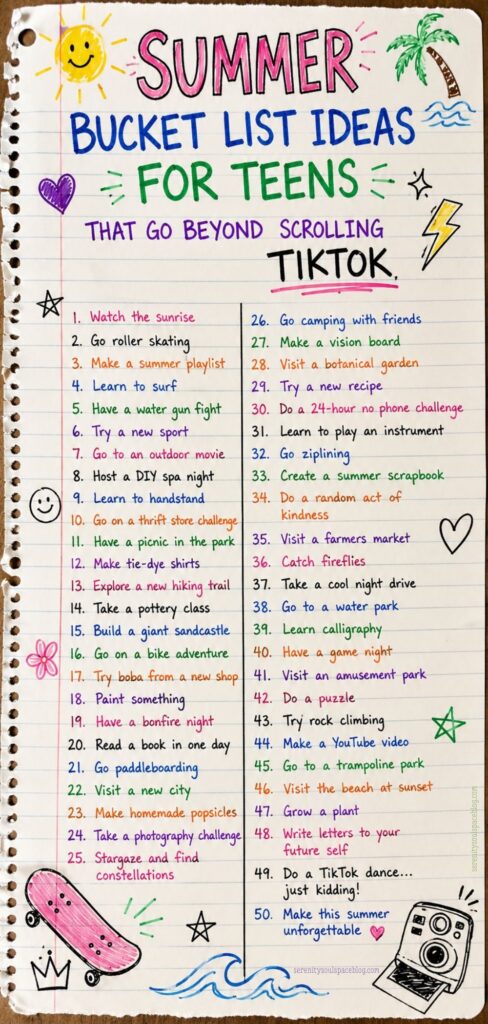 SUMMER
BUCKET LIST IDEAS
FOR TEENS
THAT GO BEYOND SCROLLING
TIKTOK.
1. Watch the sunrise
2. Go roller skating
3. Make a summer playlist
4. Learn to surf
5. Have a water gun fight
6. Try a new sport
7. Go to an outdoor movie
8. Host a DIY spa night
9. Learn to handstand
10. Go on a thrift store challenge
11. Have a picnic in the park
12. Make tie-dye shirts
13. Explore a new hiking trail
14. Take a pottery class
15. Build a giant sandcastle
16. Go on a bike adventure
17. Try boba from a new shop
18. Paint something
19. Have a bonfire night
20. Read a book in one day
21. Go paddleboarding
22. Visit a new city
23. Make homemade popsicles
24. Take a photography challenge
25. Stargaze and find
constellations
26. Go camping with friends
27. Make a vision board
28. Visit a botanical garden
29. Try a new recipe
30. Do a 24-hour no phone challenge
31. Learn to play an instrument
32. Go ziplining
33. Create a summer scrapbook
34. Do a random act of
kindness
35. Visit a farmers market
36. Catch fireflies
37. Take a cool night drive
38. Go to a water park
39. Learn calligraphy
40. Have a game night
41. Visit an amusement park
42. Do a puzzle
43. Try rock climbing
44. Make a YouTube video
45. Go to a trampoline park
46. Visit the beach at sunset
47. Grow a plant
48. Write letters to your
future self
49. Do a TikTok dance...
just kidding!
50. Make this summer
unforgettable
serenitysoulspaceblog.com
serenitysoulspaceblog.com